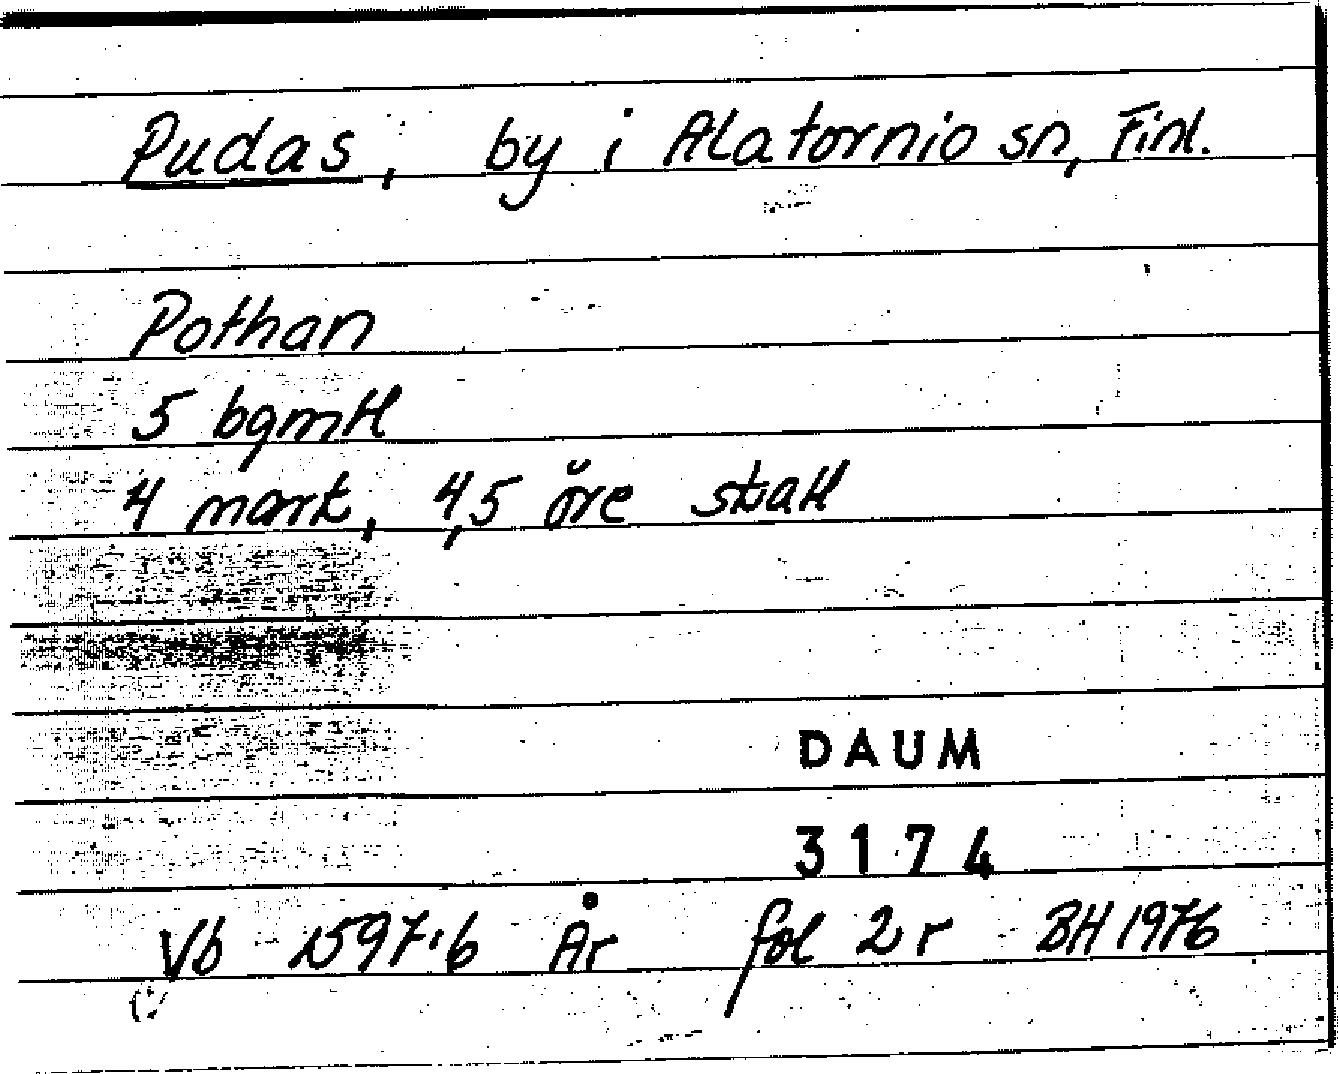 Pudas, by i Alatornio sn, Finl.
Pothan
5 bgmtl
4 mark, 4,5 öre skatt
DAUM
3174
Vb 1597:6 År fol 2r BH 1976